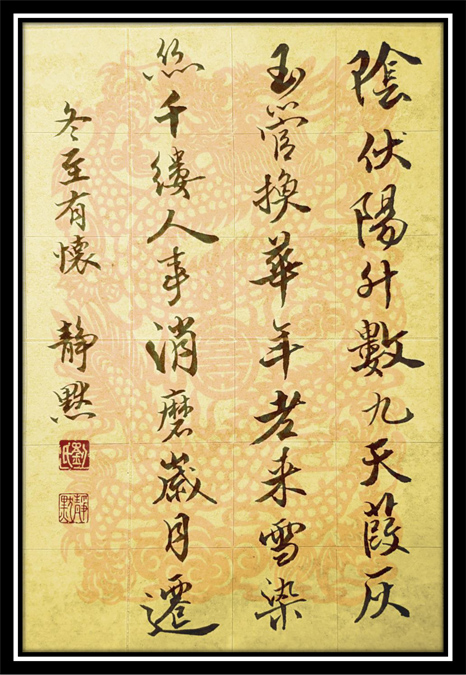 陰伏陽升數九天葭灰
玉管換華年老来雪染
絲千縷人事消磨歲月遷
冬至有懷 靜黙
劉氏
靜黙